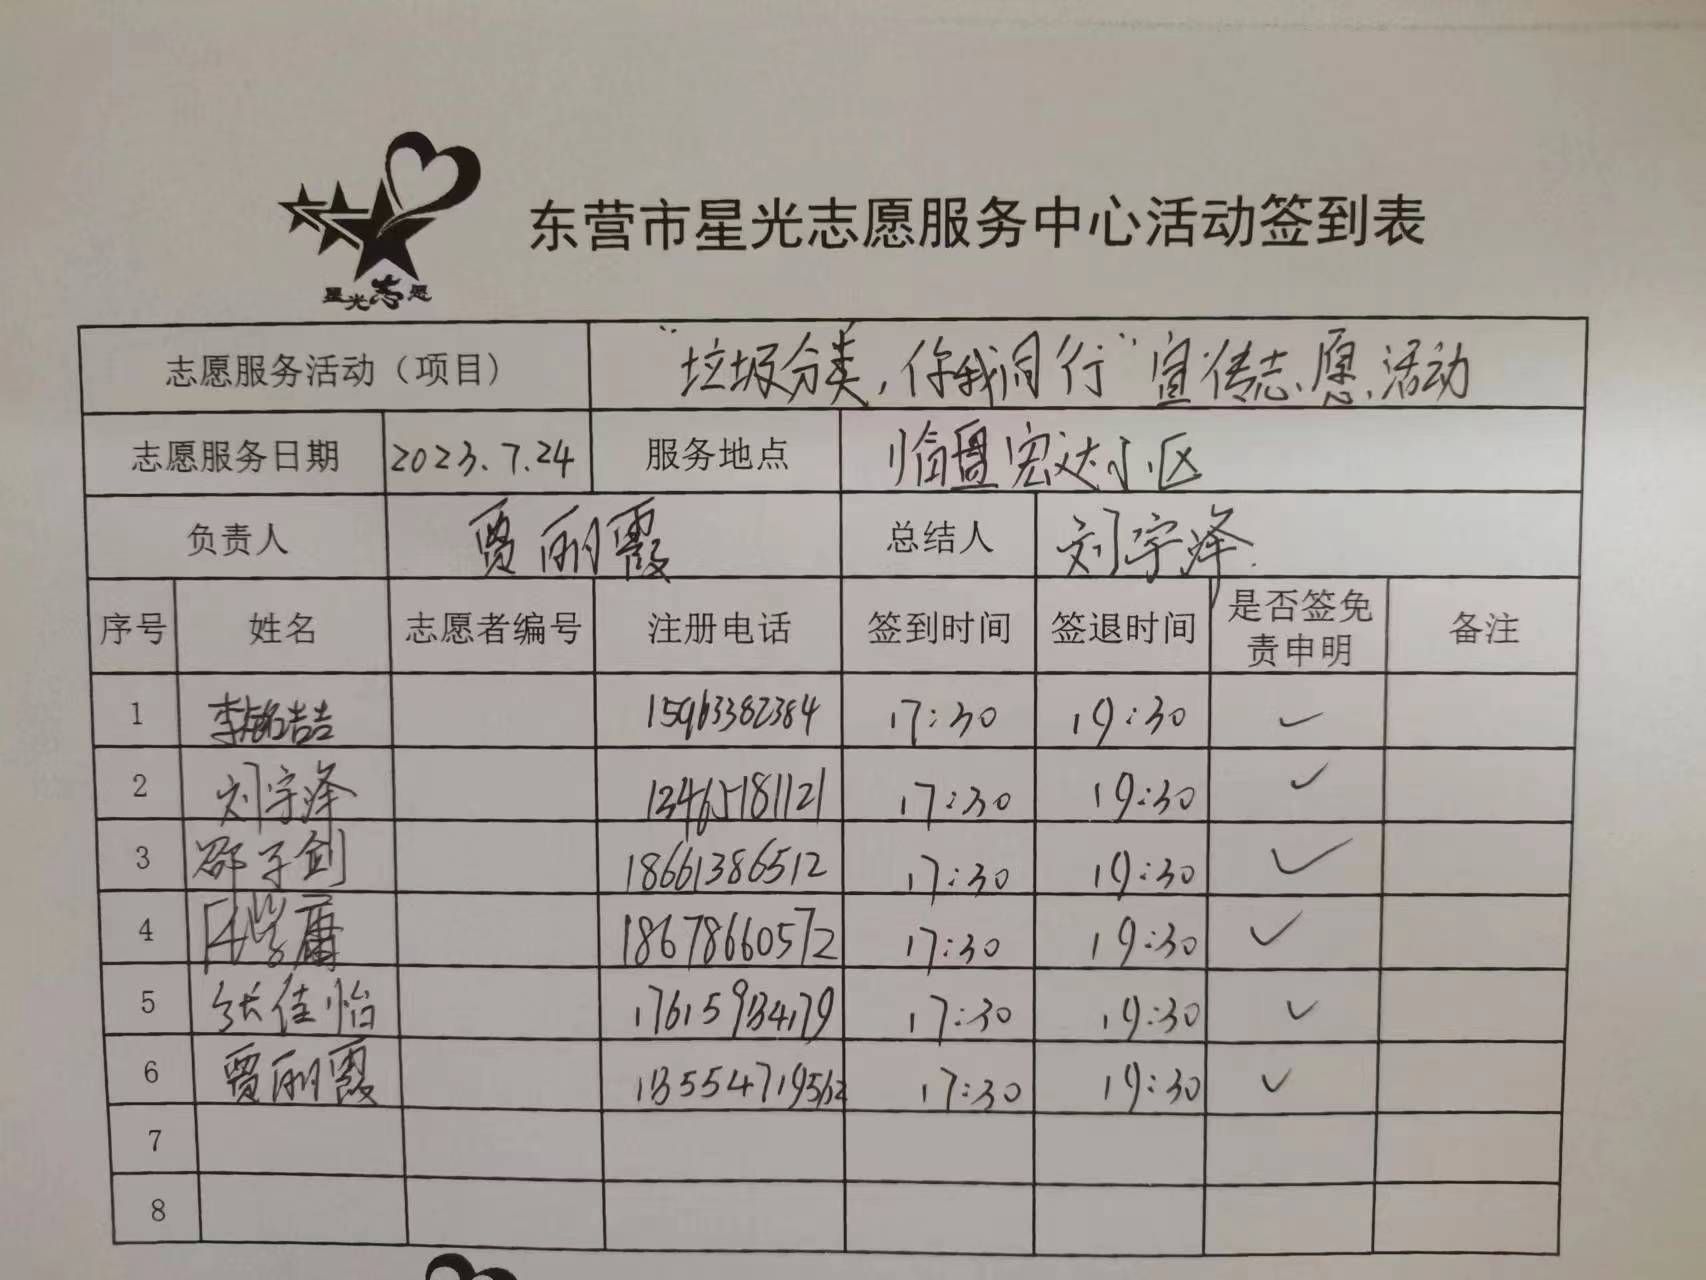 星光志愿
东营市星光志愿服务中心活动签到表
志愿服务活动（项目） “垃圾分类，你我同行”宣传志愿活动
志愿服务日期 2023.7.24 服务地点 临盘宏达小区
负责人 贾丽霞 总结人 刘宇泽
序号 姓名 志愿者编号 注册电话 签到时间 签退时间 是否签免责申明 备注
1 李铭喆 15963382384 17:30 19:30 ✓
2 刘宇泽 13465181121 17:30 19:30 ✓
3 邵子剑 18661386512 17:30 19:30 ✓
4 18678660572 17:30 19:30 ✓
5 张佳怡 17615934179 17:30 19:30 ✓
6 贾丽霞 17:30 19:30 ✓
7
8